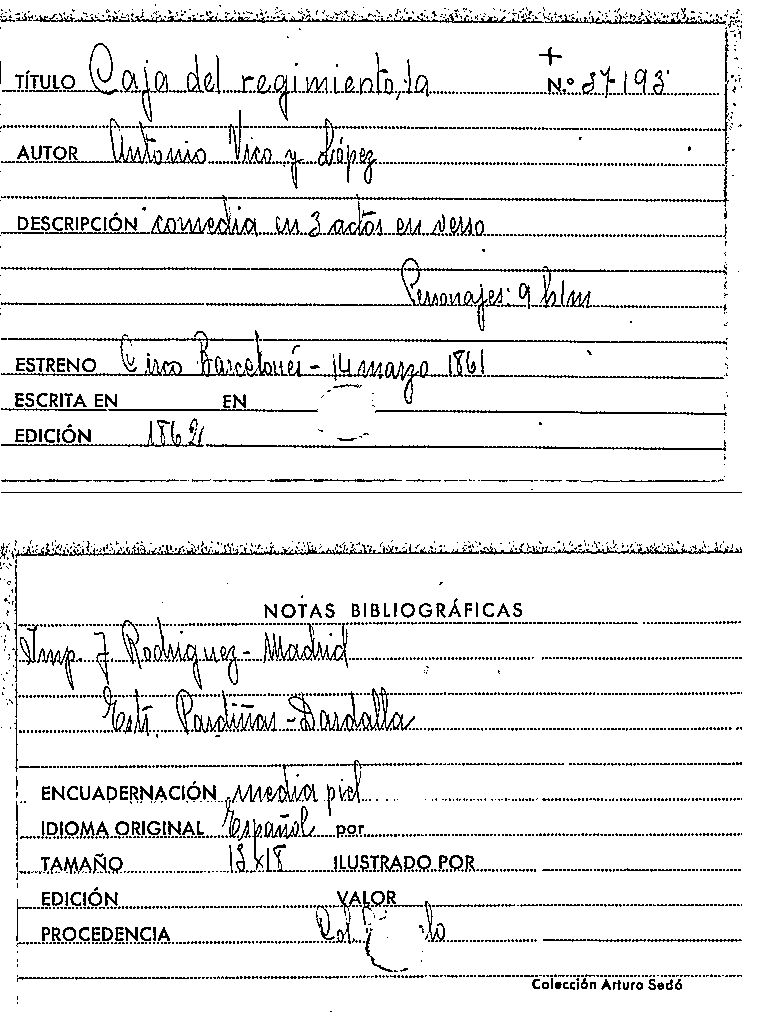 +
TÍTULO Caja del regimiento, la N.º 37-193
AUTOR Antonio Vico y López
DESCRIPCIÓN comedia en 3 actos en verso
Personajes: 9 h 1 m
ESTRENO Circo Barcelonés - 14 marzo 1861
ESCRITA EN EN
EDICIÓN 1862
NOTAS BIBLIOGRÁFICAS
Imp. J Rodriguez - Madrid
Estr. Pardiñas - Dardalla
ENCUADERNACIÓN media piel
IDIOMA ORIGINAL Español por
TAMAÑO 13x18 ILUSTRADO POR
EDICIÓN VALOR
PROCEDENCIA
Colección Arturo Sedó